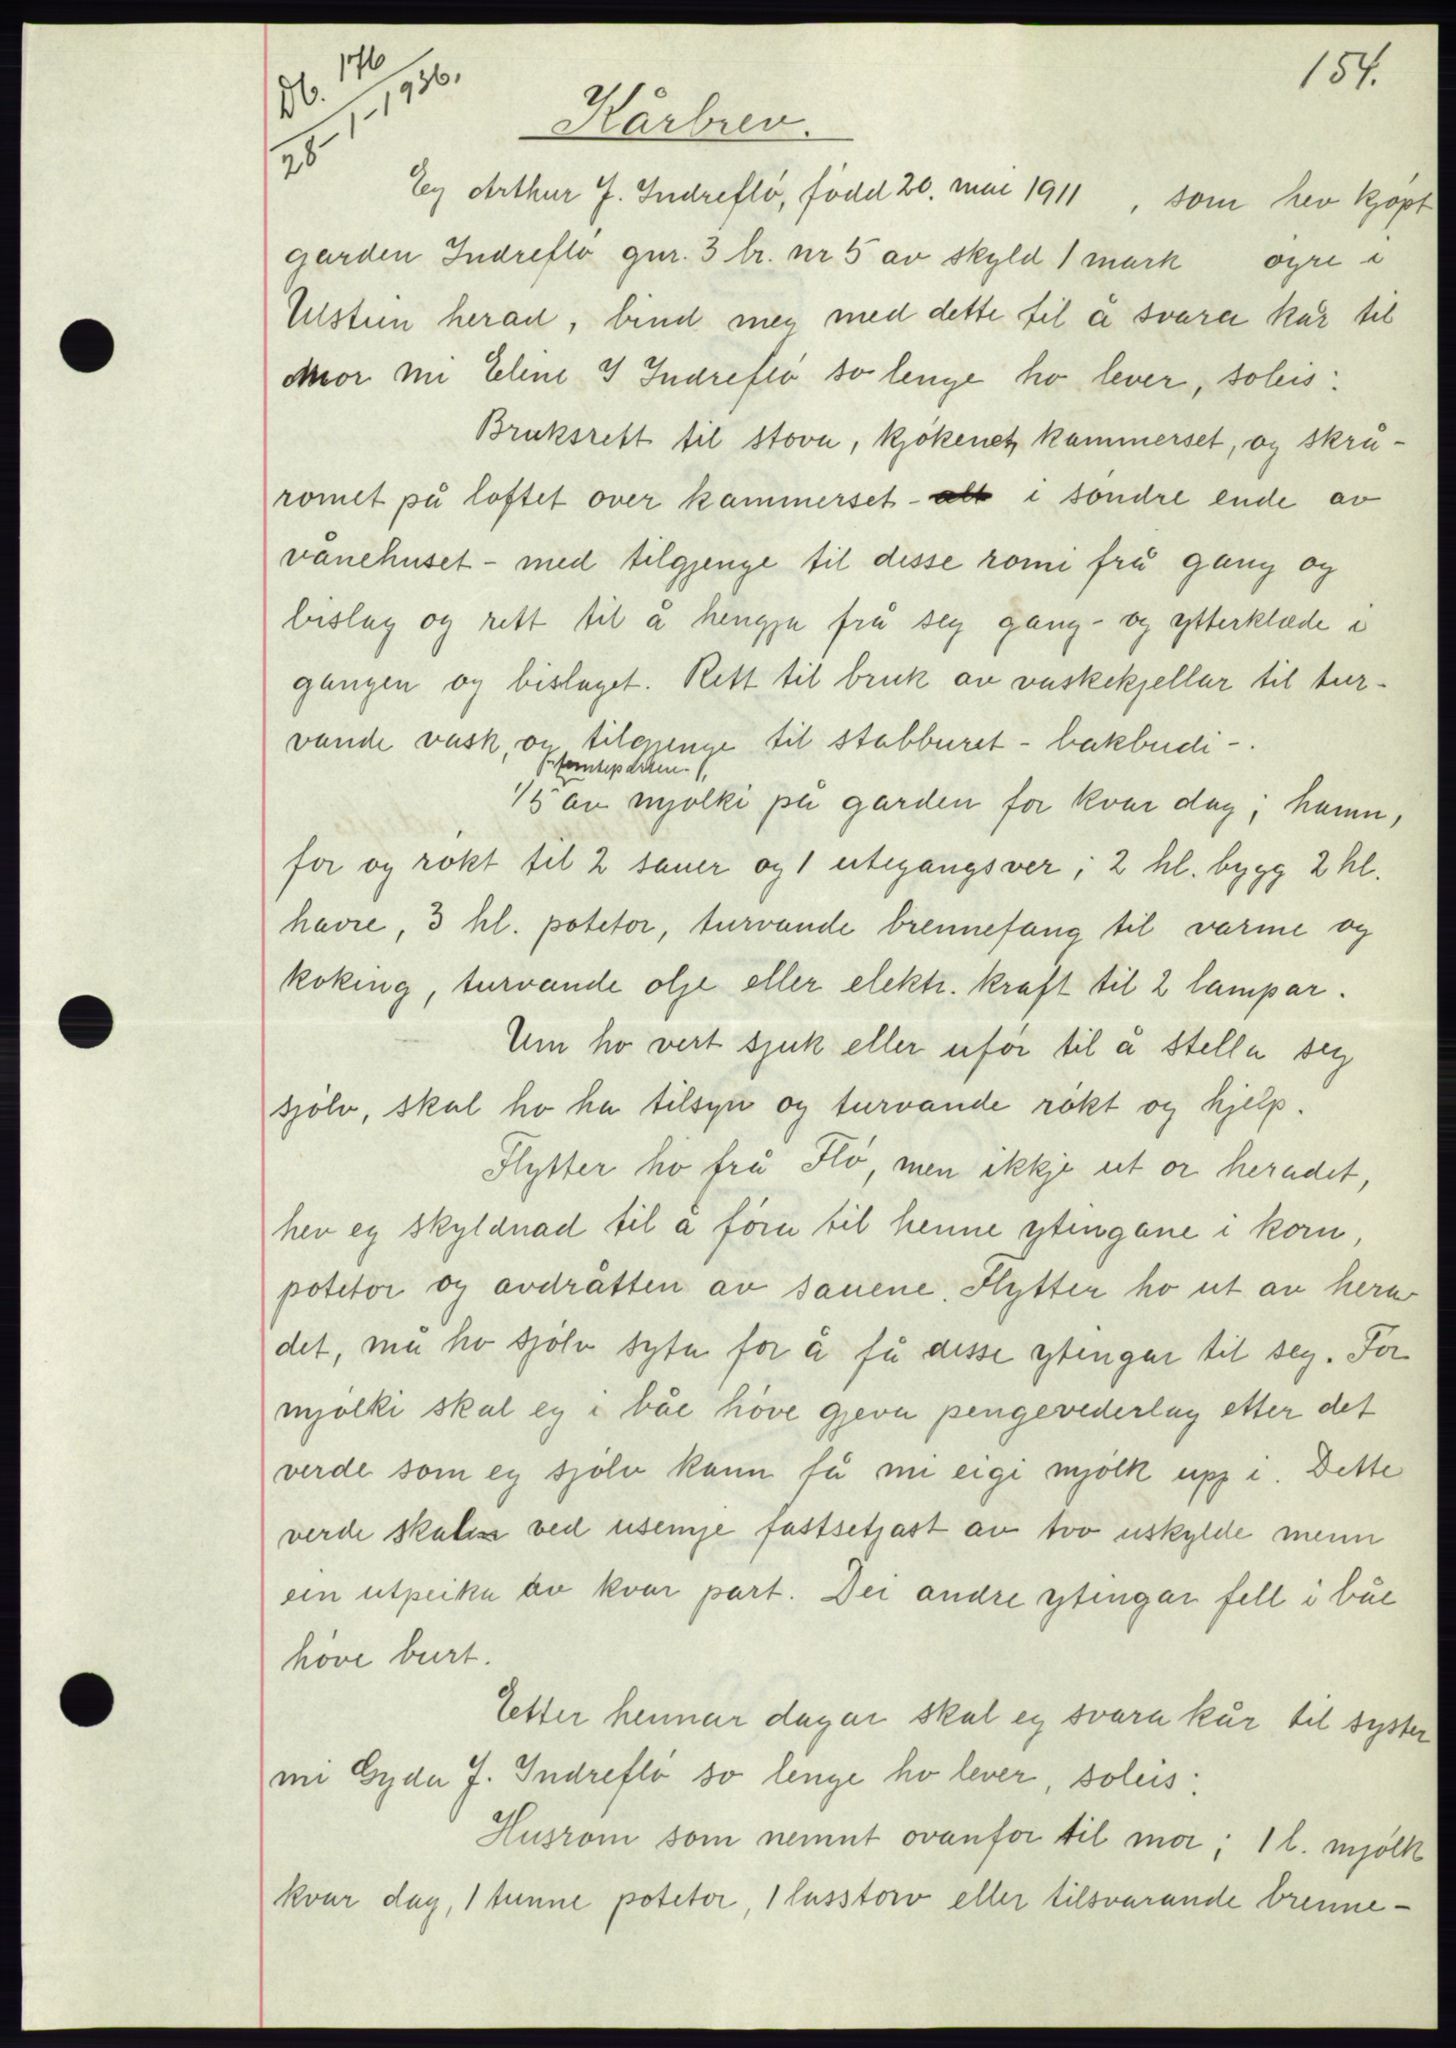 154.
Db. 176
28-1-1936.
Kårbrev.
Eg Arthur J. Indreflö, född 20. mai 1911 , som hev kjöpt
garden Indreflö gnr. 3 br. nr 5 av skyld 1 mark öyre i
Ulstein herad, bind meg med dette til å svara kår til
mor mi Eline J Indreflö so lenge ho lever, soleis:
Bruksrett til stova, kjökenet, kammerset, og skrå-
romet på loftet over kammerset - alt i söndre ende av
vånehuset - med tilgjenge til disse romi frå gang og
bislag og rett til å hengja frå seg gang- og ytterklæde i
gangen og bislaget. Rett til bruk av vaskekjellar til tur-
vande vask, og tilgjenge til stabburet - bakbudi -.
/femteparten/
1/5 av mjölki på garden for kvar dag; hamn,
for og rökt til 2 sauer og 1 utegangsver; 2 hl. bygg 2 hl.
havre, 3 hl. potetor, turvande brennefang til varme og
koking, turvande olje eller elektr. kraft til 2 lampar.
Um ho vert sjuk eller uför til å stella seg
sjölv, skal ho ha tilsyn og turvande rökt og hjelp.
Flytter ho frå Flö, men ikkje ut or heradet,
hev eg skyldnad til å föra til henne ytingane i korn,
potetor og avdråtten av sauene. Flytter ho ut av hera-
det, må ho sjölv syta for å få disse ytingar til seg. For
mjölki skal eg i båe höve gjeva pengevederlag etter det
verde som eg sjölv kann få mi eigi mjölk upp i. Dette
verde skal ved usemje fastsetjast av tvo uskylde menn
ein utpeika av kvar part. Dei andre ytingar fell i båe
höve burt.
Etter hennar dagar skal eg svara kår til syster
mi Gyda J. Indreflö so lenge ho lever, soleis:
Husrom som nemnt ovanfor til mor; 1 l. mjölk
kvar dag, 1 tunne potetor, 1 lasstorv eller tilsvarande brenne-